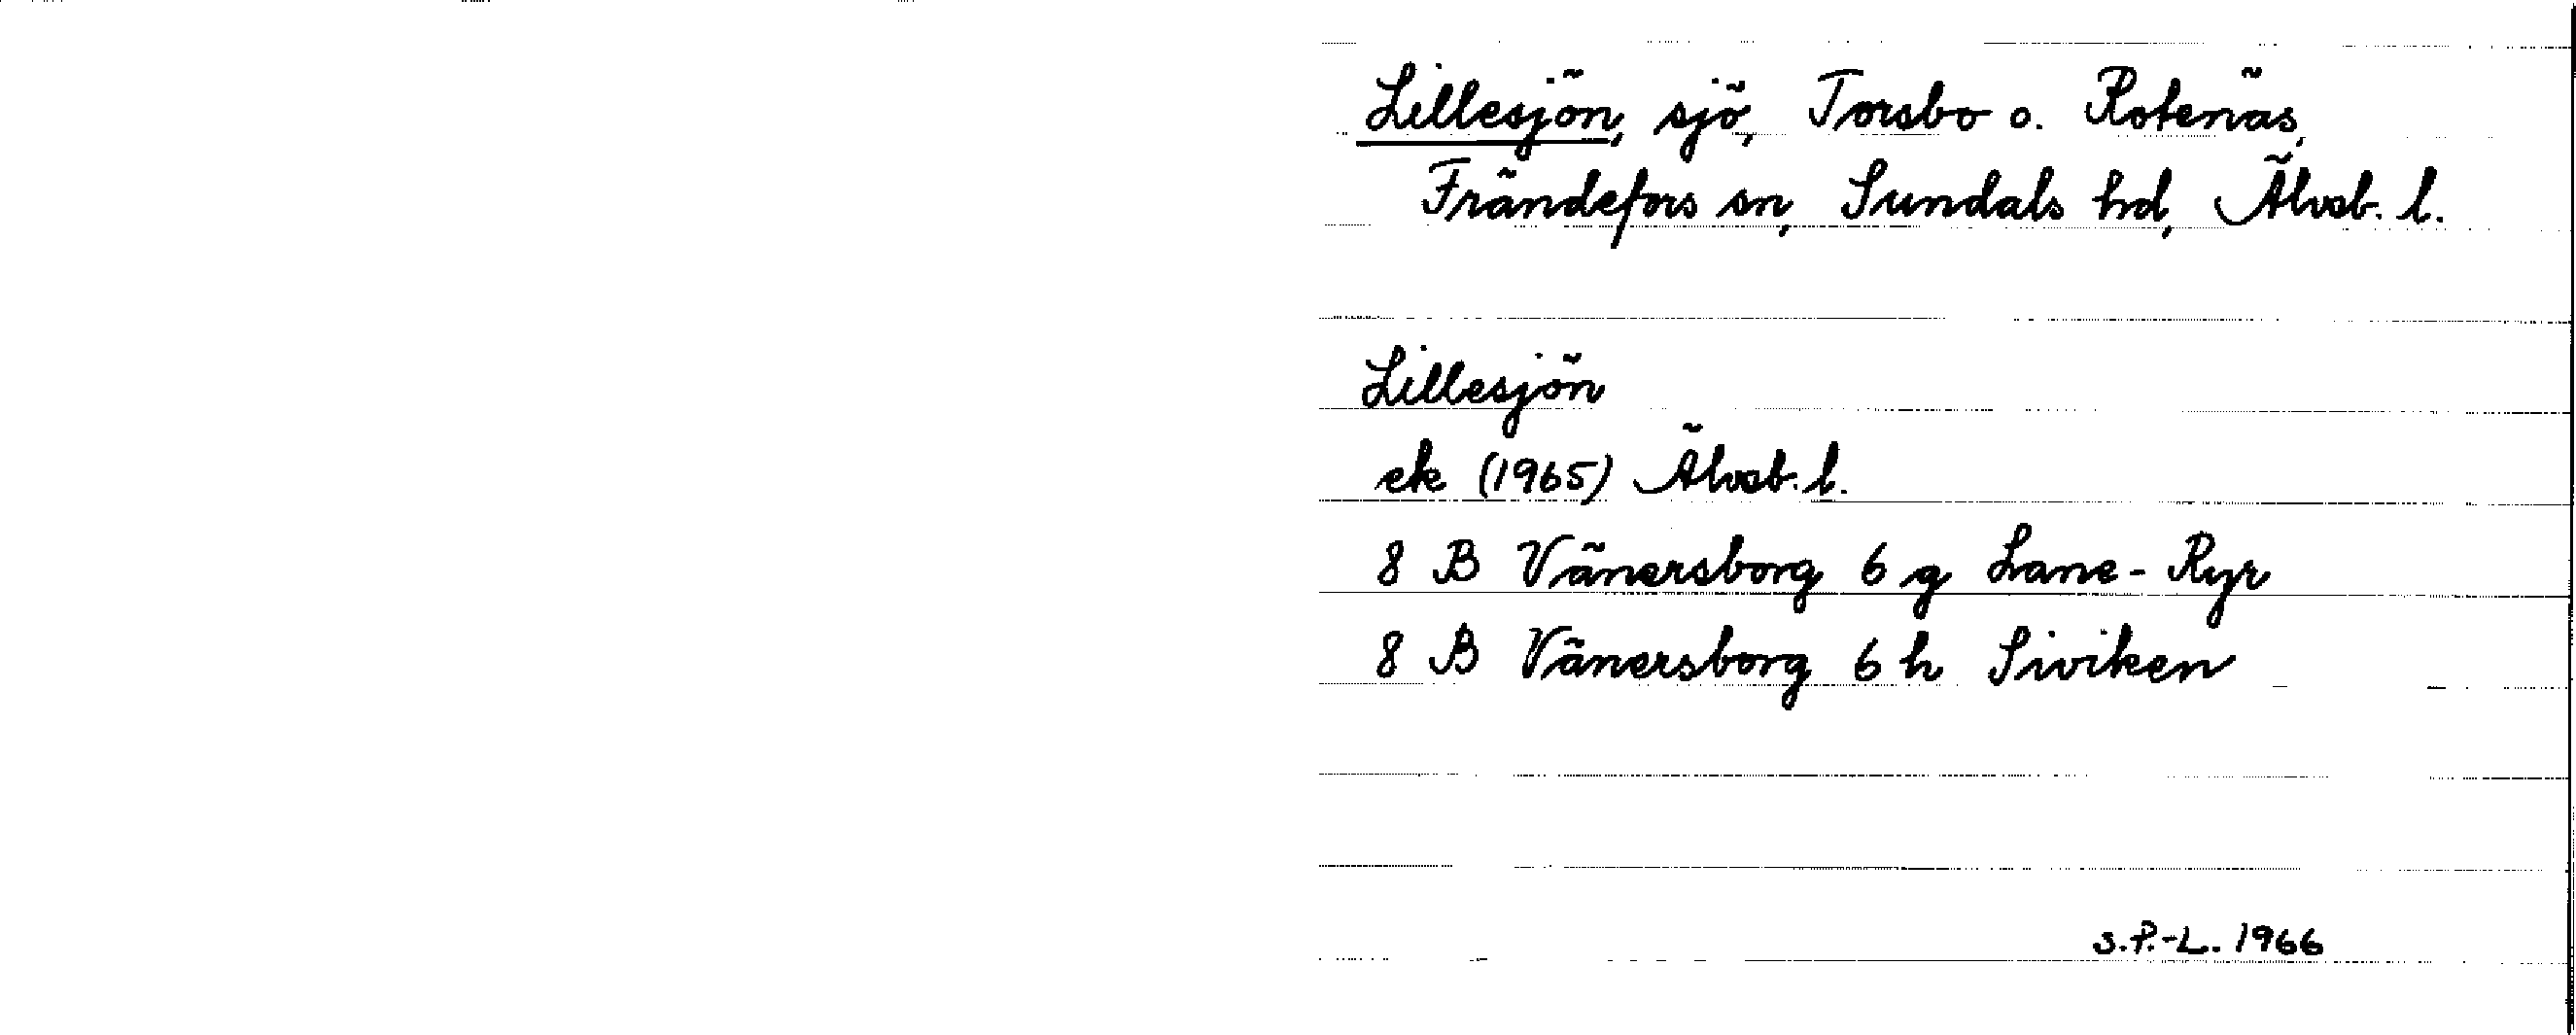 Lillesjön, sjö, Torsbo o. Rotenäs,
Frändefors sn, Sundals hd, Älvsb. l.
Lillesjön
ek (1965) Älvsb. l.
8 B Vänersborg 6 g Lane-Ryr
8 B Vänersborg 6 h Siviken
S.P.-L. 1966